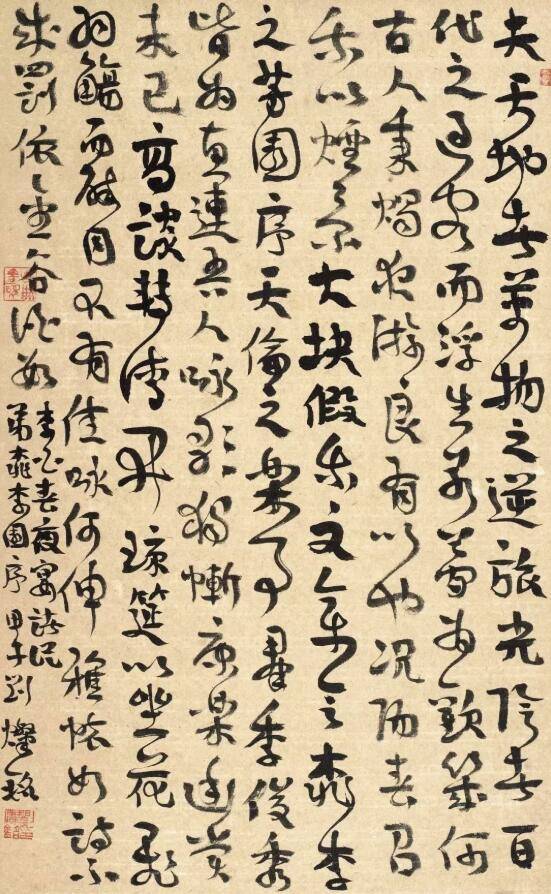 夫天地者萬物之逆旅光陰者百
代之過客而浮生若夢為歡幾何
古人秉燭夜游良有以也況陽春召
我以煙景大块假我文章會桃李
之芳園序天倫之樂事羣季俊秀
皆為惠連吾人詠歌獨慚康樂幽賞
未已高談轉清開瓊筵以坐花飛
羽觴而醉月不有佳詠何伸雅懷如詩不
成罰依金谷酒數
李白春夜宴諸從
弟桃李園序 甲午劉燦銘